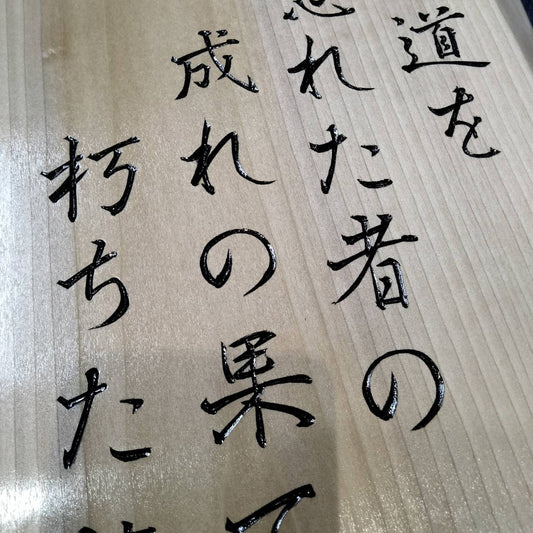 道を
れた者の
成れの果て
朽ちた